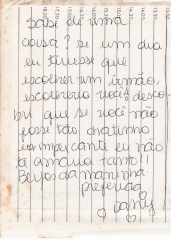 coisa? se um dia
eu tivesse que
escolher um irmão,
escolheria você! desco-
bri que se você não
fosse tão chatinho
e implicante eu não
ti amaria tanto!!
Beijos da maninha
preferida